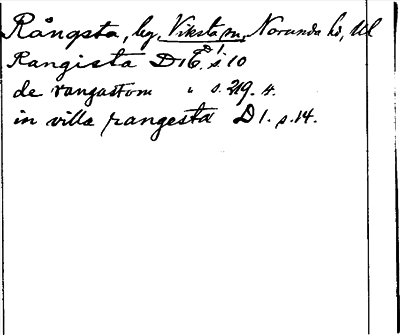 Rångsta, by, Viksta sn, Norunda hd, Ul
Rangista D16. s. 10
de rangastom " s. 219. 4.
in villa rangesta D1. s. 14.